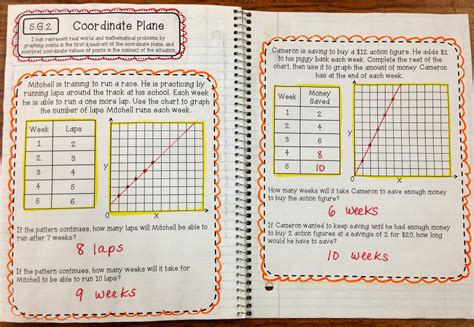 5.G.2
Coordinate Plane
I can represent real world and mathematical problems by
graphing points in the first quadrant of the coordinate plane, and
interpret coordinate values of points in the context of the situation.
Mitchell is training to run a race. He is practicing by
running laps around the track at his school. Each week
he is able to run a one more lap. Use the chart to graph
the number of laps Mitchell runs each week.
Week Laps
1 2
2 3
3 4
4 5
5 6
y
x
If the pattern continues, how many laps will Mitchell be able to
run after 7 weeks?
8 laps
If the pattern continues, how many weeks will it take for
Mitchell to be able to run 10 laps?
9 weeks
Cameron is saving to buy a $12 action figure. He adds $2
to his piggy bank each week. Complete the rest of the
chart, then use it to graph the amount of money Cameron
has at the end of each week.
Week Money
Saved
1 2
2 4
3 6
4 8
5 10
y
x
How many weeks will it take Cameron to save enough money
to buy the action figure?
6 weeks
If Cameron wanted to keep saving until he had enough money
to buy 2 action figures at a savings of 2 for $20, how long
would he have to save?
10 weeks